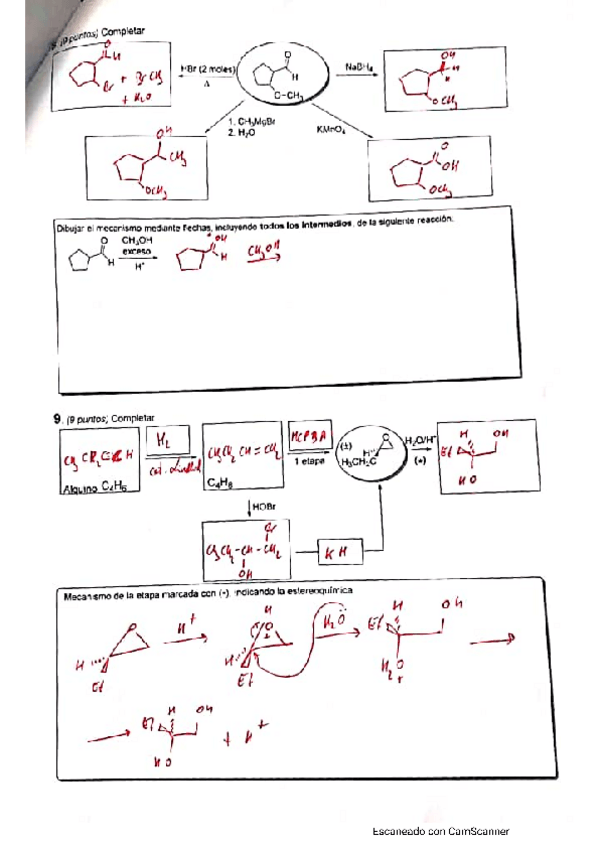 (9 puntos) Completar
HBr (2 moles)
Δ
O
H
O-CH3
NaBH4
OH
H
OCH3
O
H
Br + BrCH3
+ H2O
1. CH3MgBr
2. H2O
KMnO4
OH
CH3
OCH3
O
OH
OCH3
Dibujar el mecanismo mediante flechas, incluyendo todos los intermedios, de la siguiente reacción.
O
H
CH3OH
exceso
H+
OH
H
CH3OH
9. (9 puntos) Completar
H2
Alquino C4H6
CH3CH2CH=CH2
C4H8
MCPBA
1 etapa
(±)
O
H
H3CH2C
H2O/H+
(*)
H
OH
Et
HO
HOBr
Br
CH3CH2-CH-CH2
OH
KH
Mecanismo de la etapa marcada con (*), indicando la estereoquímica
O
H
Et
H+
H
O
+
H
Et
H2O
H
OH
Et
H2O
+
H
OH
Et
HO
+ H+
Escaneado con CamScanner